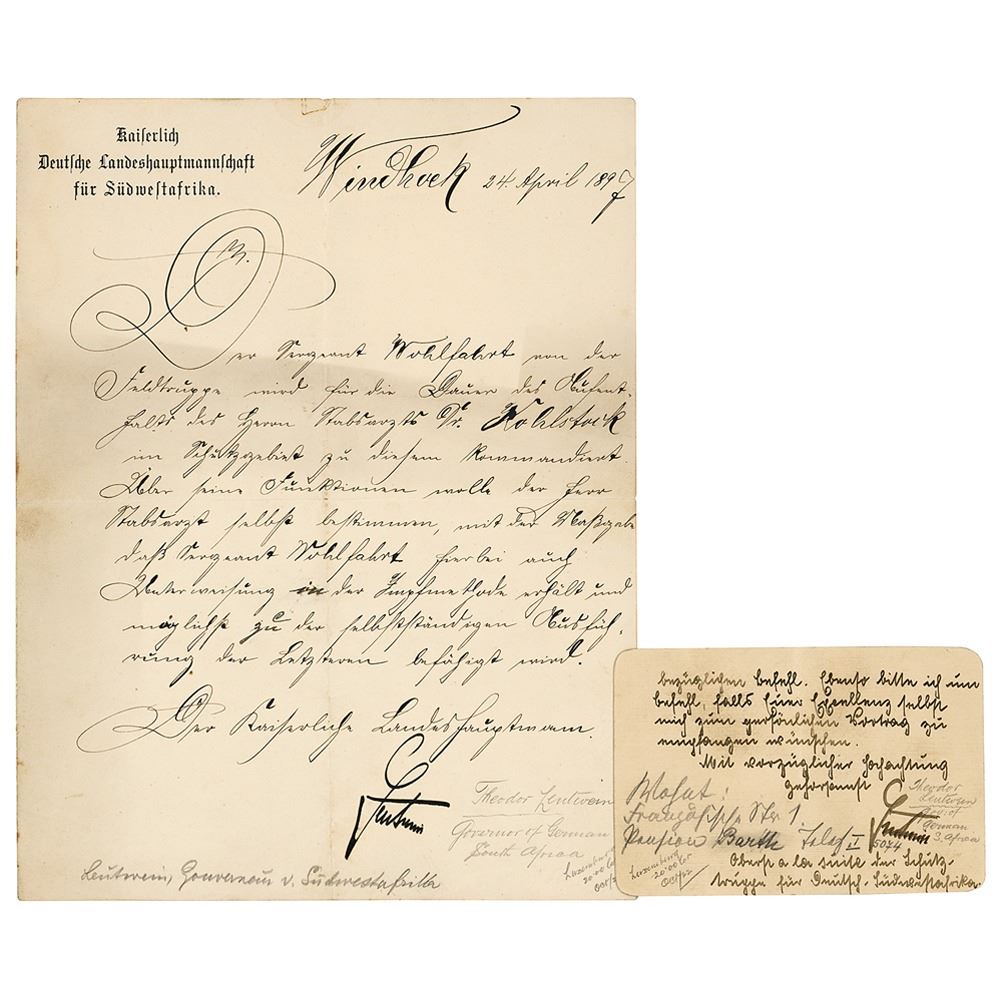 Kaiserlich
Deutsche Landeshauptmannschaft
für Südwestafrika.
Windhoek 24. April 1897
Der Sergeant Wohlfahrt von der
Feldtruppe wird für die Dauer des Aufent-
halts des Herrn Stabsarzts Dr. Kohlstock
im Schutzgebiet zu diesem kommandiert.
Über seine Funktionen wolle der Herr
Stabsarzt selbst bestimmen, mit der Maßgabe
daß Sergeant Wohlfahrt hierbei auch
Unterweisung in der Impfmethode erhält und
möglichst zu der selbstständigen Ausfüh-
rung der Letzteren befähigt wird.
Der Kaiserliche Landeshauptmann.
Leutwein
Theodor Leutwein
Governor of German
South Africa
Leutwein, Gouverneur v. Südwestafrika
bezüglichen Befehl. Ebenso bitte ich um
Befehl, falls Euer Exzellenz selbst
mich zum persönlichen Vortrag zu
empfangen wünschen.
Mit vorzüglicher Hochachtung
gehorsamst
Leutwein
Theodor
Leutwein
Gov. of
German
S. Africa
Französische Str 1.
Pension Barth Telef II 5074
Oberst a la suite der Schutz-
truppe für Deutsch-Südwestafrika.